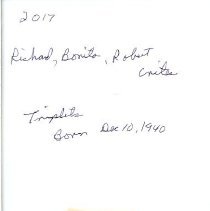 2017
Richard, Bonita, Robert
Crites
Triplets
Born Dec 10, 1940